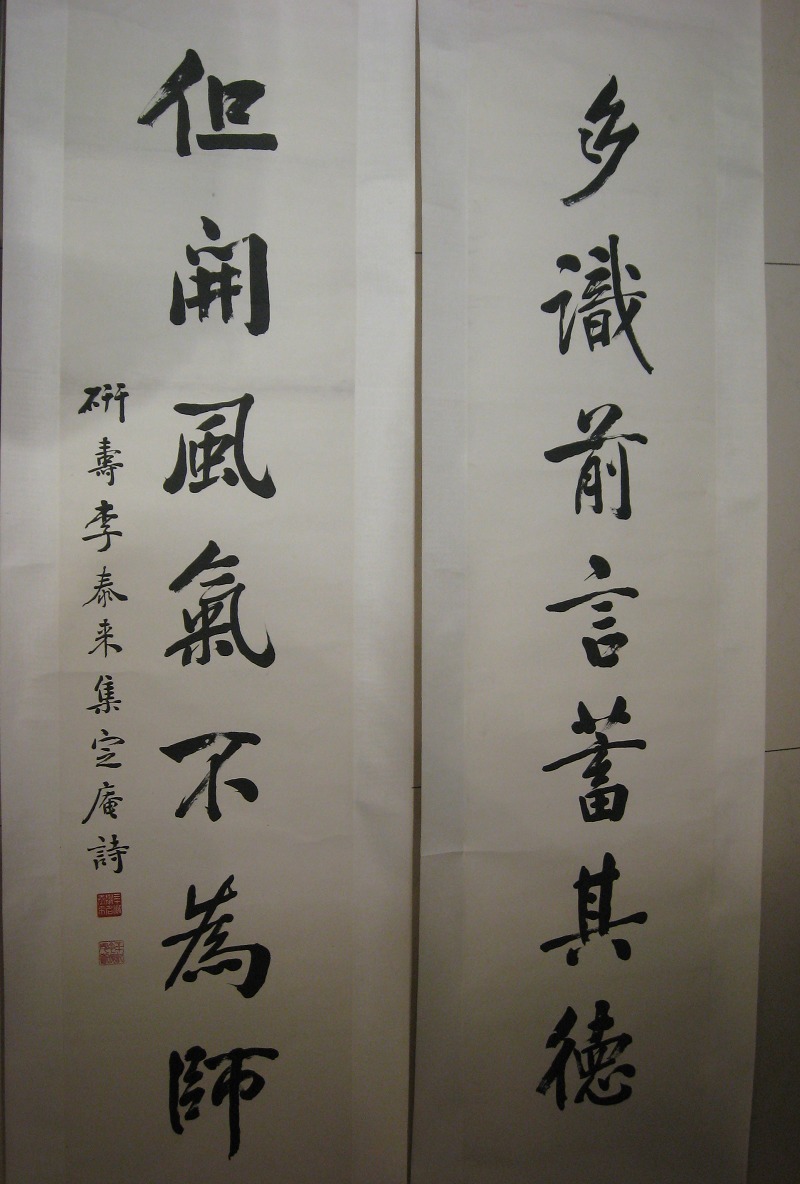 多識前言蓄其德
但開風氣不為師
硏壽李泰来集定庵詩